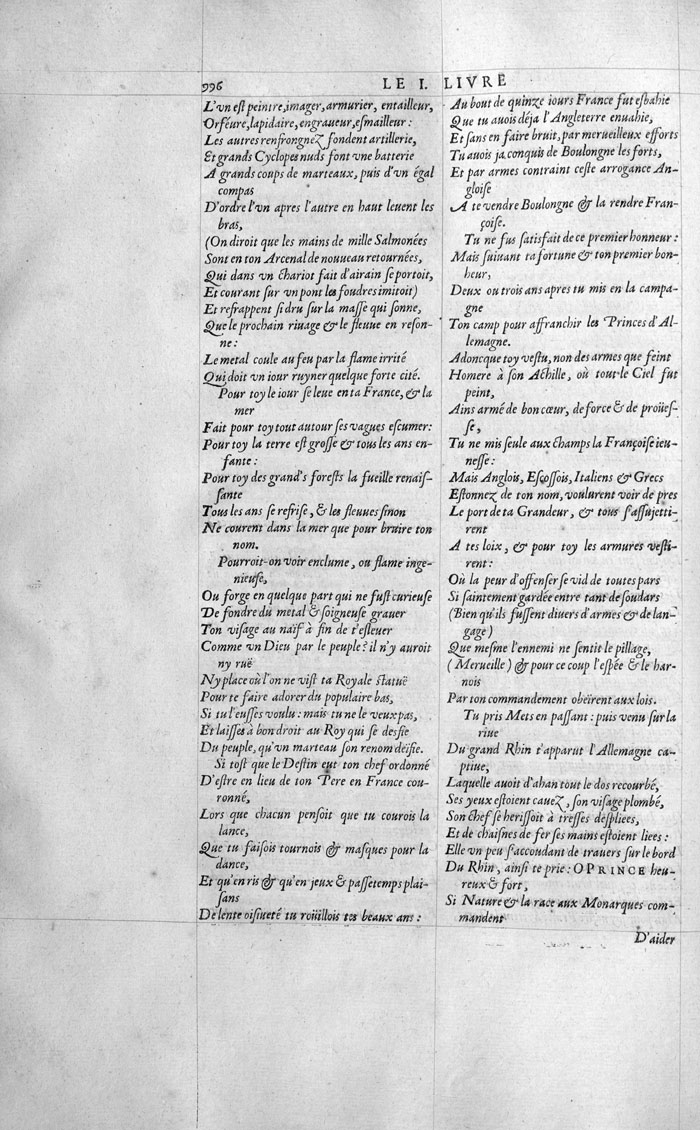 996
LE I. LIVRE
L'vn est peintre, imager, armurier, entailleur,
Orféure, lapidaire, engraueur, esmailleur:
Les autres renfrongnez fondent artillerie,
Et grands Cyclopes nuds font vne batterie
A grands coups de marteaux, puis d'vn égal
compas
D'ordre l'vn apres l'autre en haut leuent les
bras,
(On diroit que les mains de mille Salmonées
Sont en ton Arcenal de nouueau retournées,
Qui dans vn chariot fait d'airain se portoit,
Et courant sur vn pont les foudres imitoit)
Et refrappent si dru sur la masse qui sonne,
Que le prochain riuage & le fleuue en reson-
ne:
Le metal coule au feu par la flame irrité
Qui doit vn iour ruyner quelque forte cité.
Pour toy le iour se leue en ta France, & la
mer
Fait pour toy tout autour ses vagues escumer:
Pour toy la terre est grosse & tous les ans en-
fante:
Pour toy des grand's forests la fueille renais-
sante
Tous les ans se refrise, & les fleuues sinon
Ne courent dans la mer que pour bruire ton
nom.
Pourroit-on voir enclume, ou flame inge-
nieuse,
Ou forge en quelque part qui ne fust curieuse
De fondre du metal & soigneuse grauer
Ton visage au naïf à fin de t'esleuer
Comme vn Dieu par le peuple? il n'y auroit
ny ruë
Ny place où l'on ne vist ta Royale statuë
Pour te faire adorer du populaire bas,
Si tu l'eusses voulu: mais tu ne le veux pas,
Et laisses à bon droit au Roy qui se desfie
Du peuple, qu'vn marteau son renom deïfie.
Si tost que le Destin eut ton chef ordonné
D'estre en lieu de ton Pere en France cou-
ronné,
Lors que chacun pensoit que tu courois la
lance,
Que tu faisois tournois & masques pour la
dance,
Et qu'en ris & qu'en jeux & passetemps plai-
sans
De lente oisiueté tu roüillois tes beaux ans:
Au bout de quinze iours France fut esbahie
Que tu auois déja l'Angleterre enuahie,
Et sans en faire bruit, par merueilleux efforts
Tu auois ja conquis de Boulongne les forts,
Et par armes contraint ceste arrogance An-
gloise
A te vendre Boulongne & la rendre Fran-
çoise.
Tu ne fus satisfait de ce premier honneur:
Mais suiuant ta fortune & ton premier bon-
heur,
Deux ou trois ans apres tu mis en la campa-
gne
Ton camp pour affranchir les Princes d'Al-
lemagne.
Adoncque toy vestu, non des armes que feint
Homere à son Achille, où tout le Ciel fut
peint,
Ains armé de bon cœur, de force & de proües-
se,
Tu ne mis seule aux champs la Françoise ieu-
nesse:
Mais Anglois, Escossois, Italiens & Grecs
Estonnez de ton nom, voulurent voir de pres
Le port de ta Grandeur, & tous s'assujetti-
rent
A tes loix, & pour toy les armures vesti-
rent:
Où la peur d'offenser se vid de toutes pars
Si saintement gardée entre tant de soudars
(Bien qu'ils fussent diuers d'armes & de lan-
gage)
Que mesme l'ennemi ne sentit le pillage,
(Merueille) & pour ce coup l'espée & le har-
nois
Par ton commandement obeïrent aux lois.
Tu pris Mets en passant: puis venu sur la
riue
Du grand Rhin t'apparut l'Allemagne ca-
ptiue,
Laquelle auoit d'ahan tout le dos recourbé,
Ses yeux estoient cauez, son visage plombé,
Son Chef se herissoit à tresses despliees,
Et de chaisnes de fer ses mains estoient liees:
Elle vn peu s'accoudant de trauers sur le bord
Du Rhin, ainsi te prie: O PRINCE heu-
reux & fort,
Si Nature & la race aux Monarques com-
mandent
D'aider